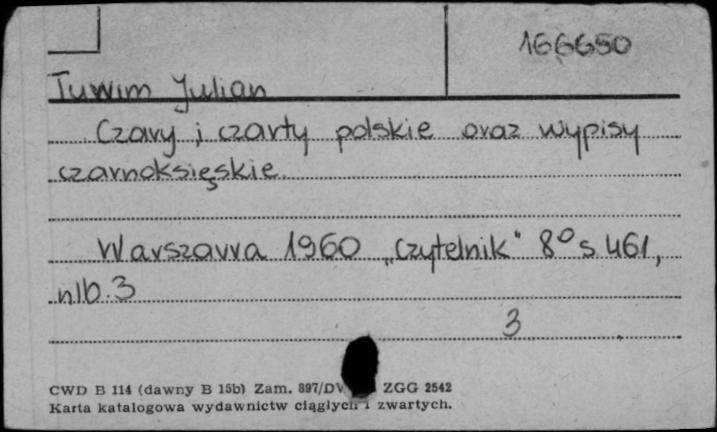 166650
Tuwim Julian
Czary i czarty polskie oraz wypisy
czarnoksięskie
Warszawa 1960 „Czytelnik" 8° s 461,
nlb. 3
3
CWD B 114 (dawny B 15b) Zam. 897/DW ZGG 2542
Karta katalogowa wydawnictw ciągłych i zwartych.